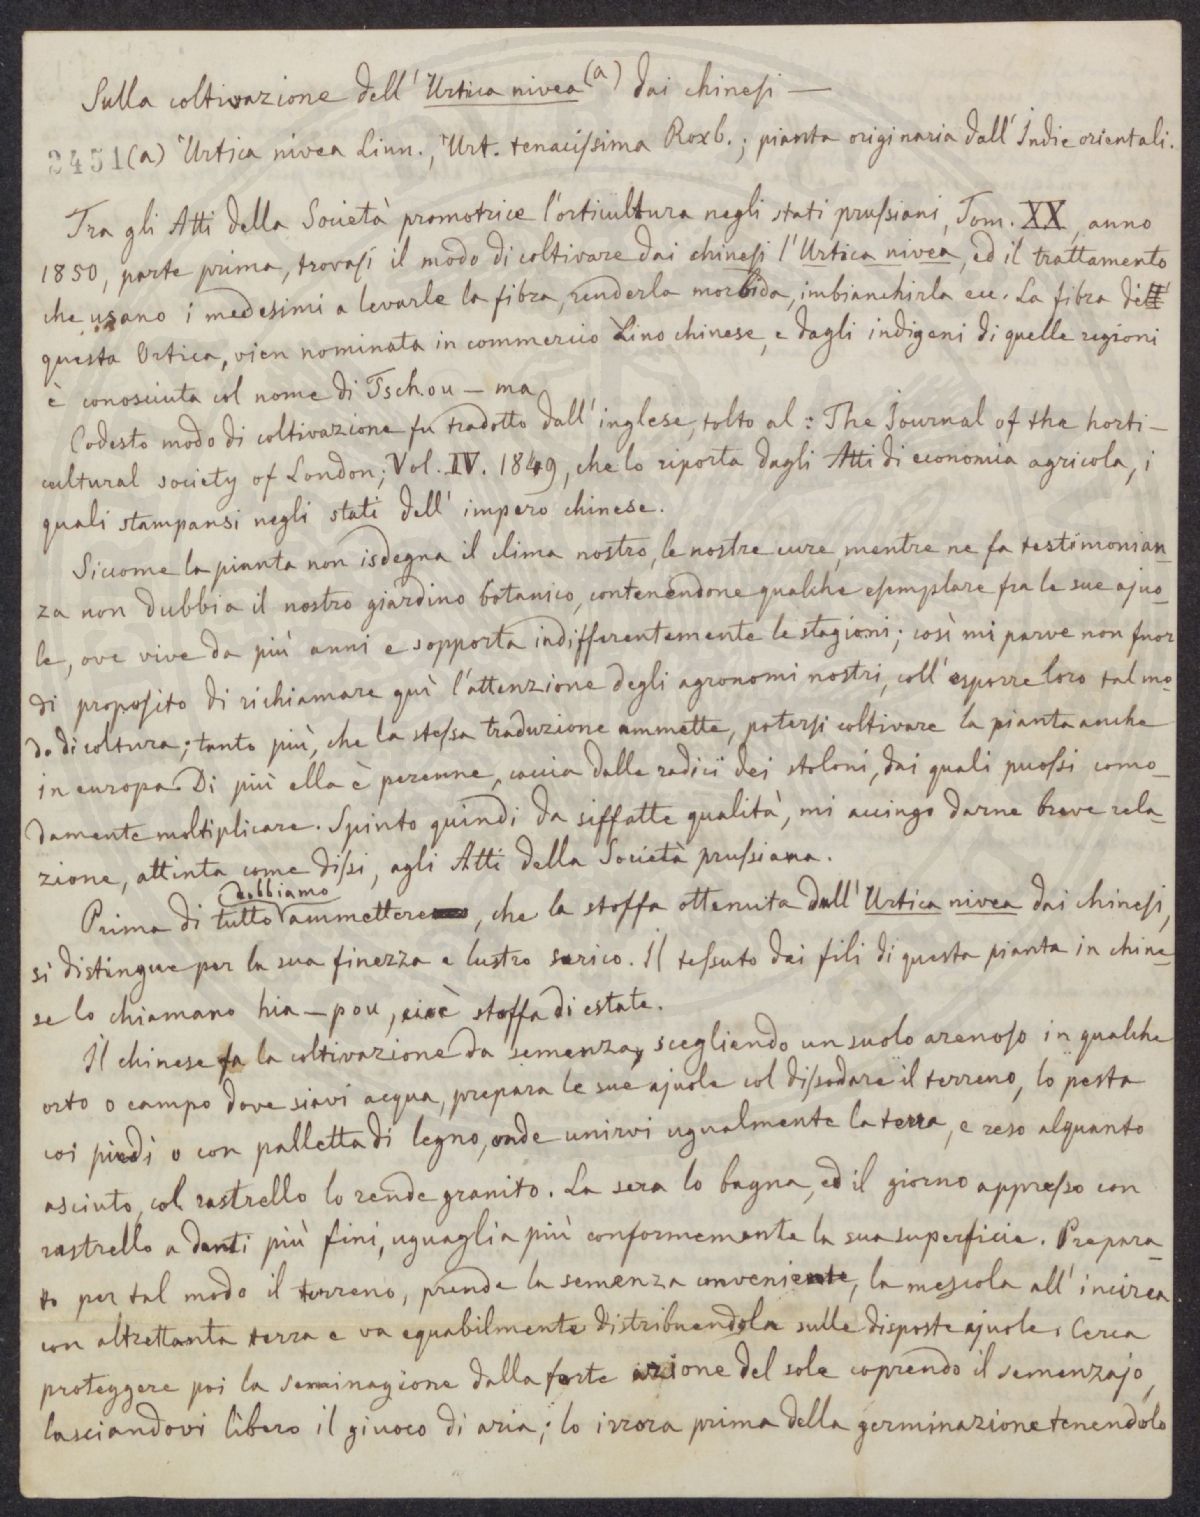 Sulla coltivazione dell' Urtica nivea (a) dai chinesi —
2451 (a) Urtica nivea Linn., Urt. tenacissima Roxb.; pianta originaria dall' Indie orientali.
Tra gli Atti della Società promotrice l'orticultura negli stati prussiani, Tom. XX, anno
1850, parte prima, trovasi il modo di coltivare dai chinesi l'Urtica nivea, ed il trattamento
che usano i medesimi a levarle la fibra, renderla morbida, imbianchirla ecc. La fibra di
questa Urtica, vien nominata in commercio Lino chinese, e dagli indigeni di quelle regioni
è conosciuta col nome di Tschou — ma
Codesto modo di coltivazione fu tradotto dall' inglese, tolto al: The Journal of the horti-
cultural society of London; Vol. IV. 1849, che lo riporta dagli Atti di economia agricola, i
quali stampansi negli stati dell' impero chinese.
Siccome la pianta non isdegna il clima nostro, le nostre cure, mentre ne fa testimonian-
za non dubbia il nostro giardino botanico, contenendone qualche esemplare fra le sue ajuo-
le, ove vive da più anni e sopporta indifferentemente le stagioni; così mi parve non fuor
di proposito di richiamare quì l'attenzione degli agronomi nostri, coll' esporre loro tal mo-
do di coltura; tanto più, che la stessa traduzione ammette, potersi coltivare la pianta anche
in europa. Di più ella è perenne, caccia dalle radici dei stoloni, dai quali puossi como-
damente moltiplicare. Spinto quindi da siffatte qualità, mi accingo darne breve rela-
zione, attinta come dissi, agli Atti della Società prussiana.
Prima di tutto dobbiamo ammettere, che la stoffa ottenuta dall' Urtica nivea dai chinesi,
si distingue per la sua finezza e lustro serico. Il tessuto dai fili di questa pianta in chine-
se lo chiamano hia — pou, cioè stoffa di estate.
Il chinese fa la coltivazione da semenza, scegliendo un suolo arenoso in qualche
orto o campo dove siavi acqua, prepara le sue ajuole col dissodare il terreno, lo pesta
coi piedi o con palletta di legno, onde unirvi ugualmente la terra, e reso alquanto
asciuto, col rastrello lo rende granito. La sera lo bagna, ed il giorno appresso con
rastrello a denti più fini, uguaglia più conformemente la sua superficie. Prepara-
to per tal modo il terreno, prende la semenza conveniente, la mescola all' incirca
con altrettanta terra e va equabilmente distribuendola sulle disposte ajuole. Cerca
proteggere poi la seminagione dalla forte azione del sole coprendo il semenzajo,
lasciandovi libero il giuoco di aria; lo irrora prima della germinazione tenendolo